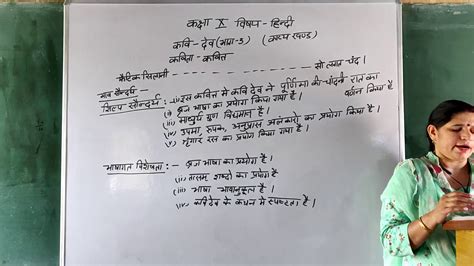 कक्षा X विषय - हिन्दी
कवि - देव (भाग-3) (काव्य खण्ड)
कविता - कवित्त
फटिक सिलानी - - - - - - - - - - - - सो लागत चंद।
भाव सौन्दर्य -
शिल्प सौन्दर्य :- (i) इस कवित्त में कवि देव ने पूर्णिमा की चाँदनी रात का वर्णन किया है।
(ii) ब्रज भाषा का प्रयोग किया गया है।
(iii) माधुर्य गुण विद्यमान है।
(iv) उपमा, रूपक, अनुप्रास अलंकारो का प्रयोग किया है।
(v) श्रृंगार रस का प्रयोग किया गया है।
भाषागत विशेषता :- (i) ब्रज भाषा का प्रयोग है।
(ii) तत्सम शब्दो का प्रयोग है
(iii) भाषा भावानुकूल है।
(iv) कवि देव के कथन में स्पष्टता है।